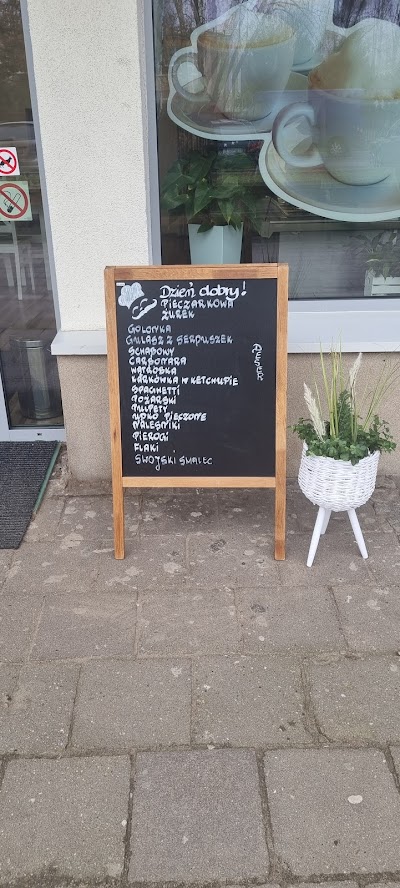 Dzień dobry!
PIECZARKOWA
ŻUREK
GOLONKA
GULASZ Z SERDUSZEK
SCHABOWY
CARBONARA
WĄTRÓBKA
KARKÓWKA W KETCHUPIE
SPAGHETTI
POŻARSKI
PULPETY
UDKO PIECZONE
NALEŚNIKI
PIEROGI
FLAKI
SWOJSKI SMALEC